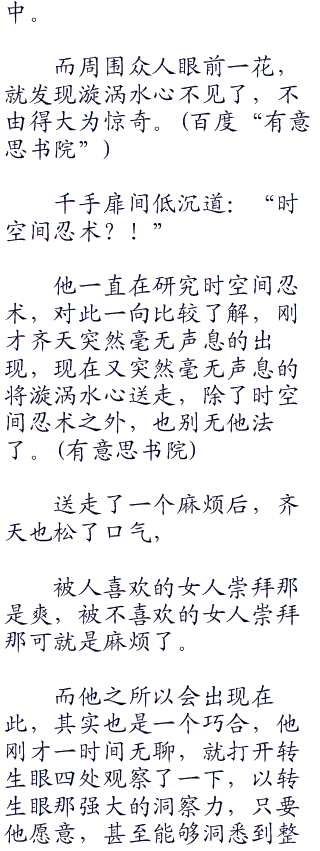 中。
而周围众人眼前一花，
就发现漩涡水心不见了，不
由得大为惊奇。(百度“有意
思书院”)
千手扉间低沉道：“时
空间忍术？！”
他一直在研究时空间忍
术，对此一向比较了解，刚
才齐天突然毫无声息的出
现，现在又突然毫无声息的
将漩涡水心送走，除了时空
间忍术之外，也别无他法
了。(有意思书院)
送走了一个麻烦后，齐
天也松了口气，
被人喜欢的女人崇拜那
是爽，被不喜欢的女人崇拜
那可就是麻烦了。
而他之所以会出现在
此，其实也是一个巧合，他
刚才一时间无聊，就打开转
生眼四处观察了一下，以转
生眼那强大的洞察力，只要
他愿意，甚至能够洞悉到整